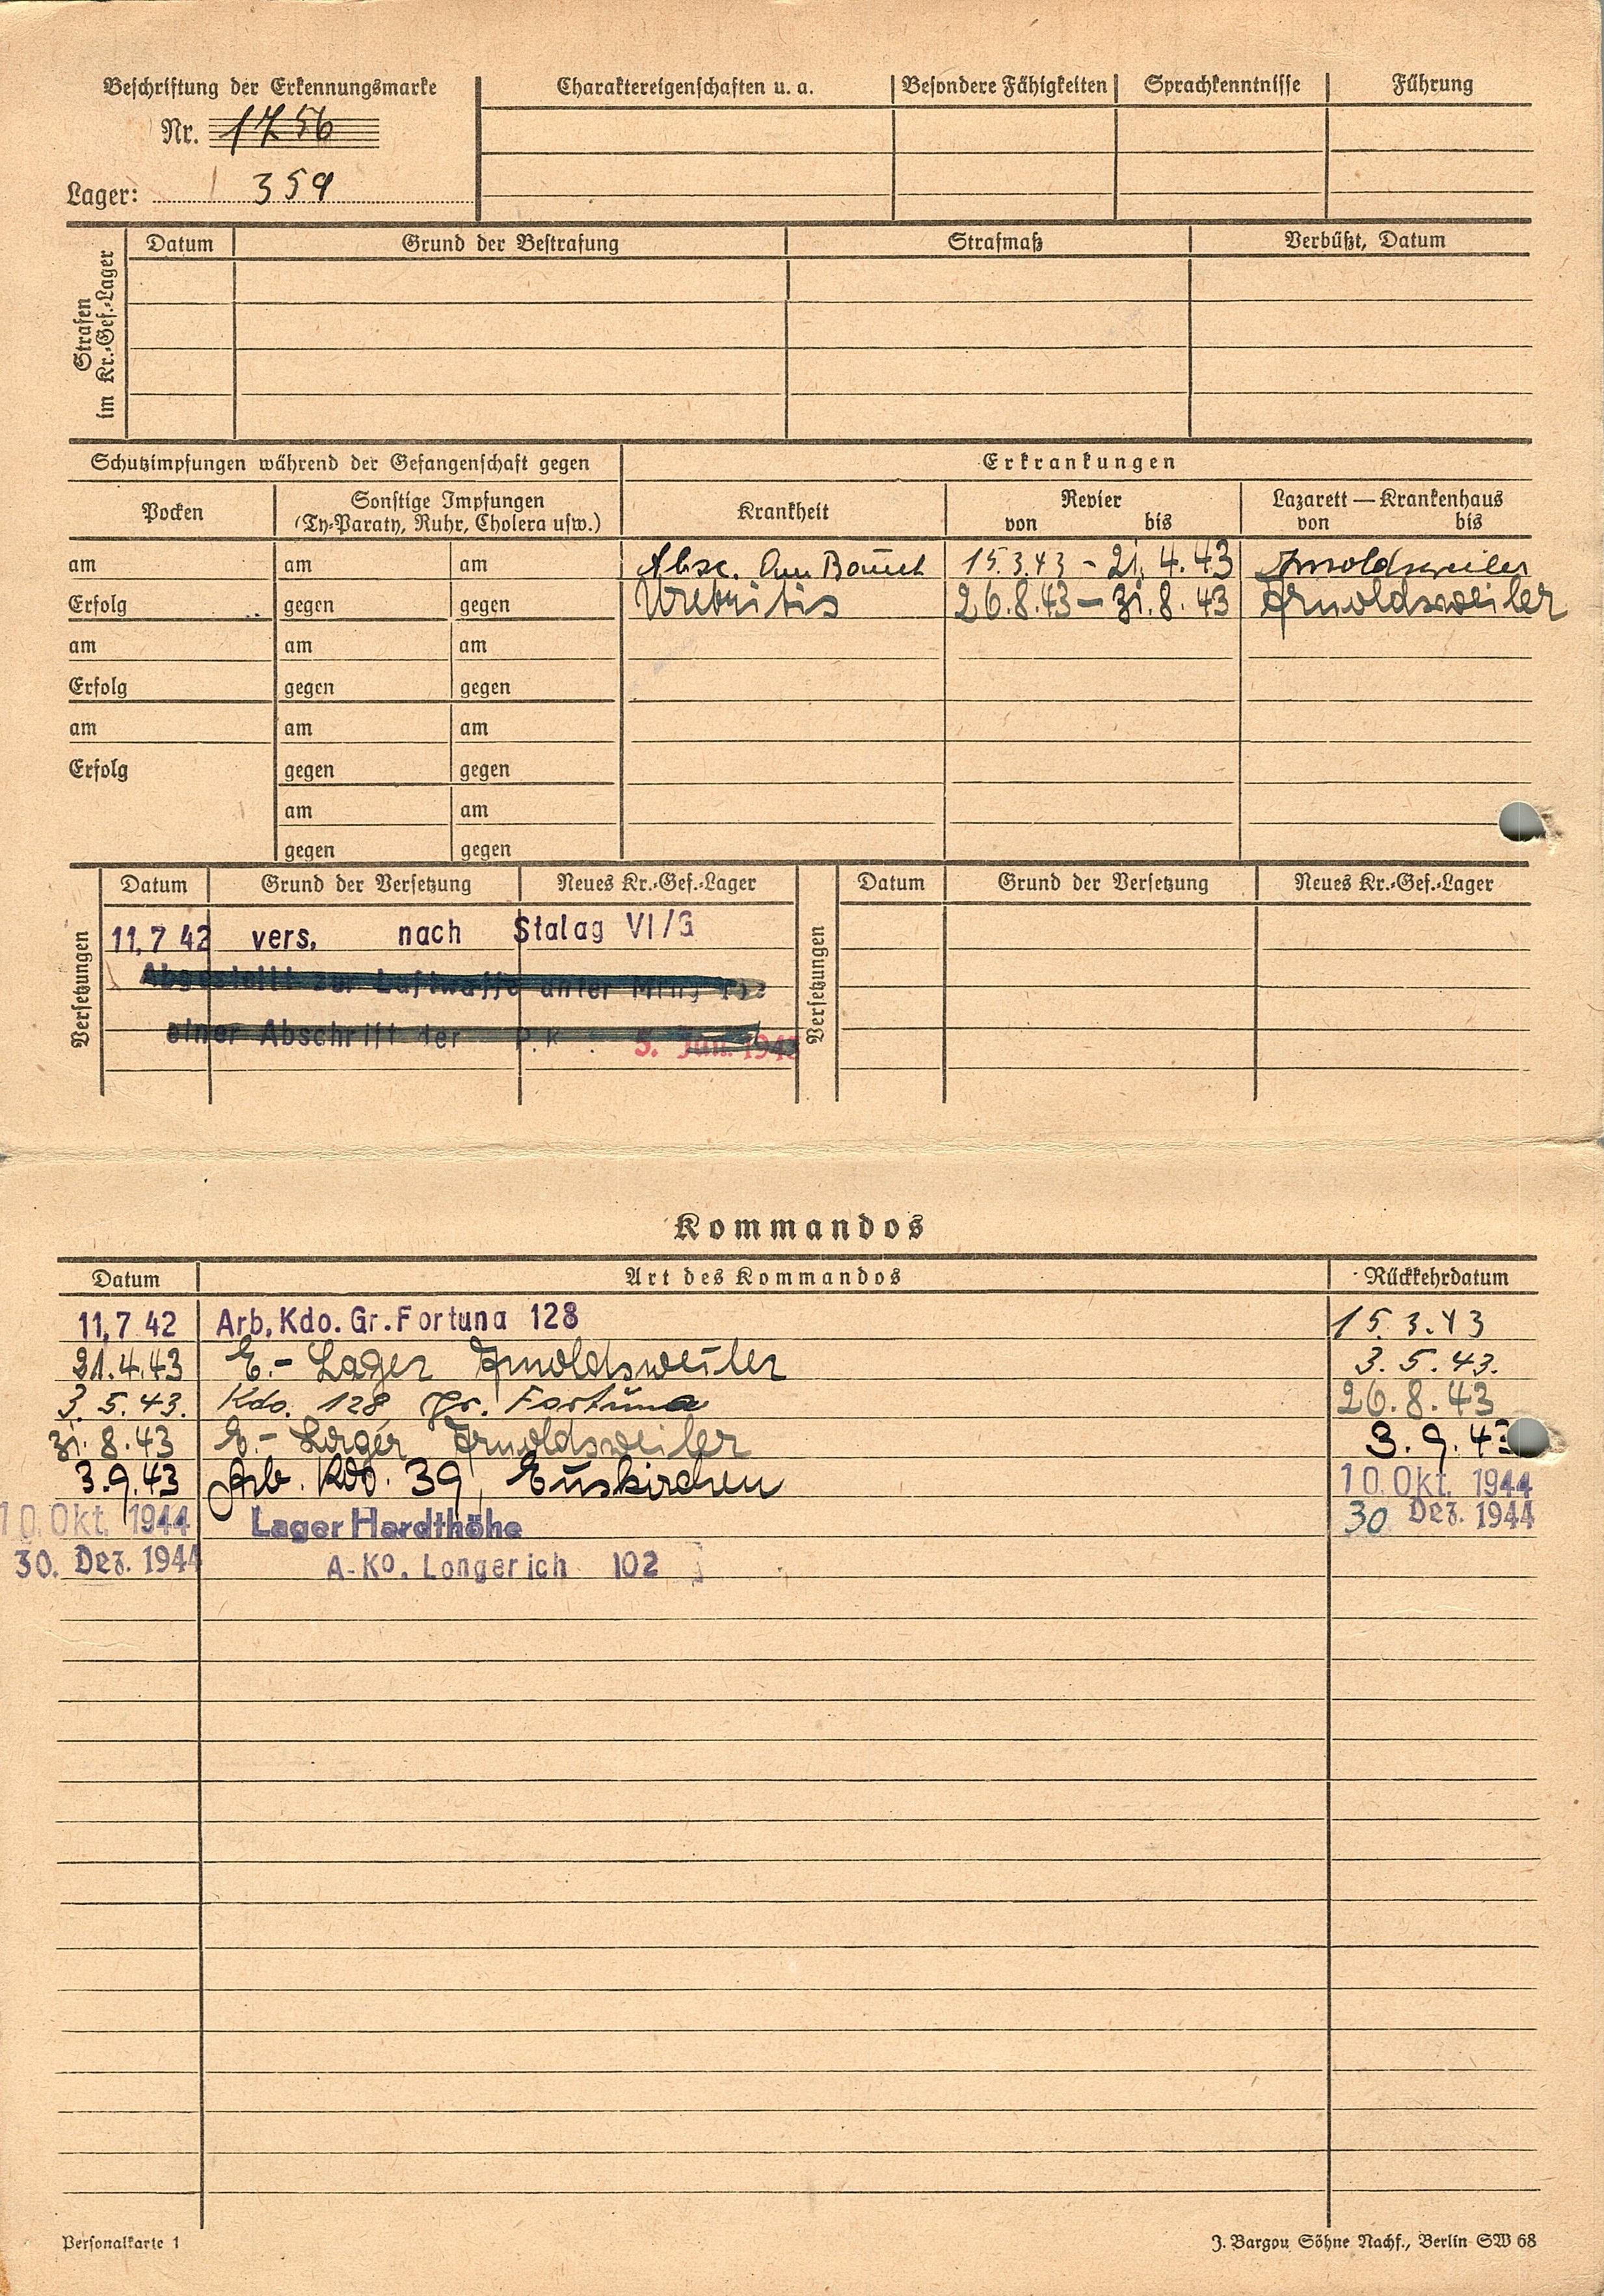 Beschriftung der Erkennungsmarke
Nr. 1756
Lager: 359
Charaktereigenschaften u. a.
Besondere Fähigkeiten
Sprachkenntnisse
Führung
Strafen im Kr.-Gef.-Lager
Datum
Grund der Bestrafung
Strafmaß
Verbüßt, Datum
Schutzimpfungen während der Gefangenschaft gegen
Erkrankungen
Pocken
Sonstige Impfungen
(Ty-Paraty, Ruhr, Cholera usw.)
Krankheit
Revier
von bis
Lazarett — Krankenhaus
von bis
am am am Absc. am Bauch 15.3.43 - 21.4.43 Arnoldsweiler
Erfolg gegen gegen Urethritis 26.8.43 - 31.8.43 Arnoldsweiler
am am am
Erfolg gegen gegen
am am am
Erfolg gegen gegen
am am
gegen gegen
Versetzungen
Datum Grund der Versetzung Neues Kr.-Gef.-Lager
11.7 42 vers. nach Stalag VI/G
Abgestellt zur Luftwaffe unter
einer Abschrift der P.K. 5. Jun. 1943
Versetzungen
Datum Grund der Versetzung Neues Kr.-Gef.-Lager
Kommandos
Datum Art des Kommandos Rückkehrdatum
11.7 42 Arb. Kdo. Gr. Fortuna 128 15.3.43
21.4.43 E.- Lager Arnoldsweiler 3.5.43.
3.5.43. Kdo. 128 Gr. Fortuna 26.8.43
31.8.43 E.- Lager Arnoldsweiler 3.9.43
3.9.43 Arb. Kdo. 39, Euskirchen 10. Okt. 1944
10. Okt. 1944 Lager Hardthöhe 30 Dez. 1944
30. Dez. 1944 A-Ko. Longerich 102
Personalkarte 1
J. Bargou Söhne Nachf., Berlin SW 68